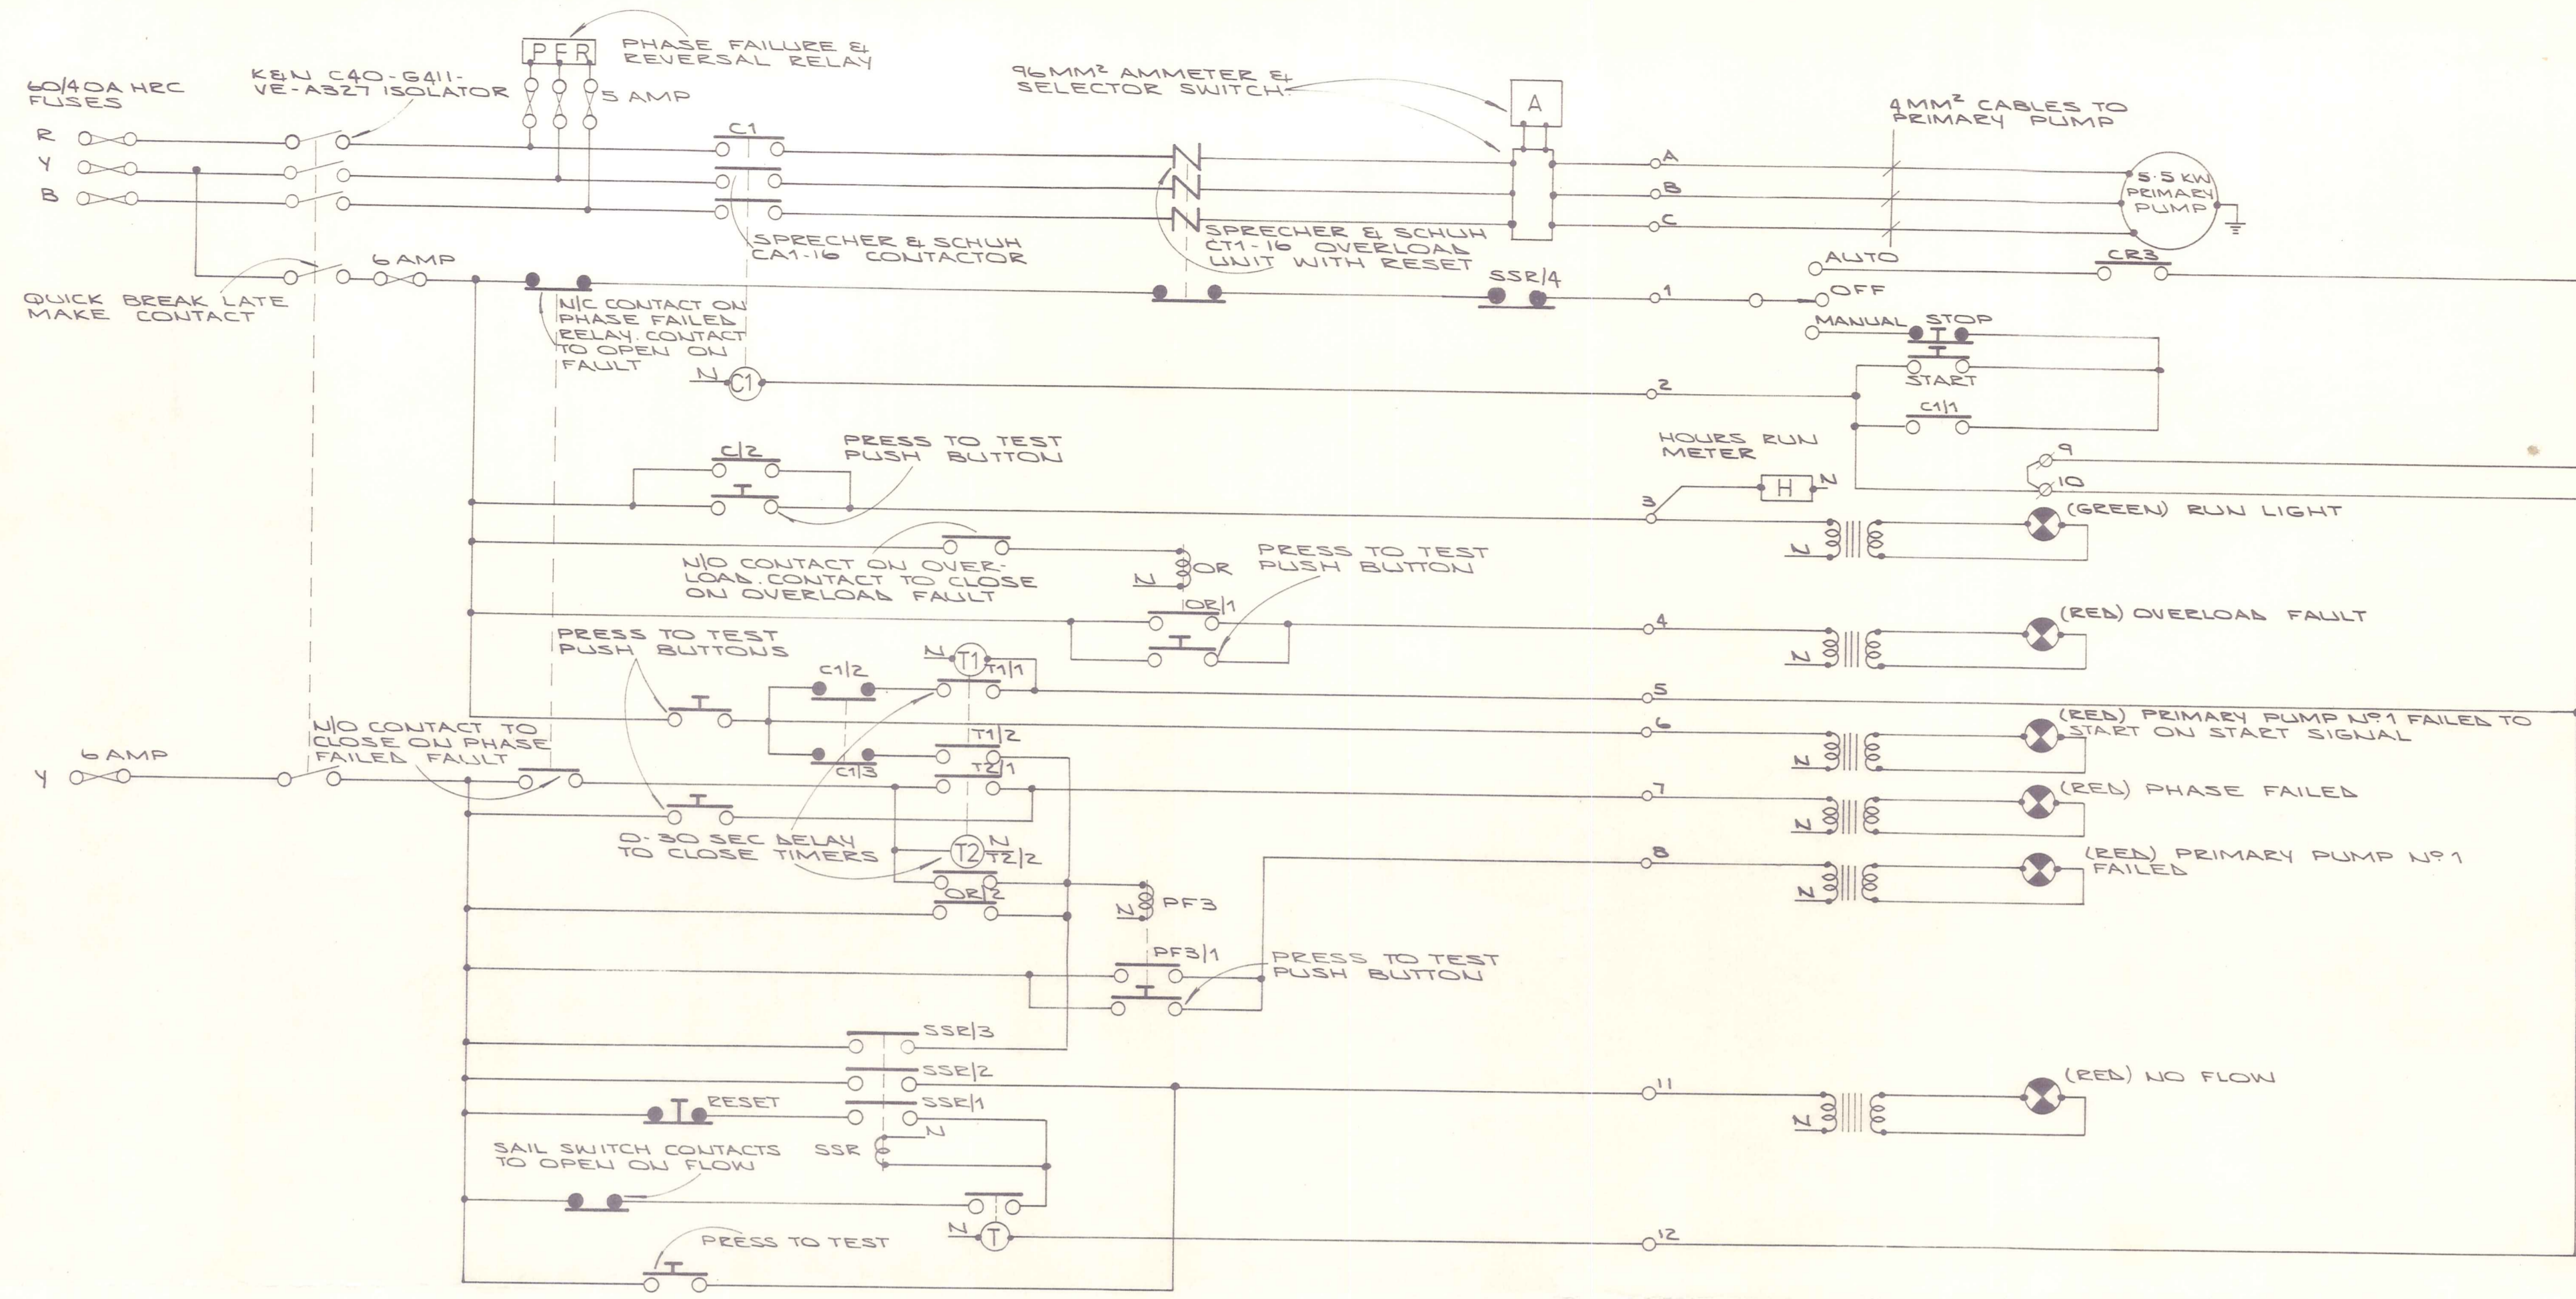 PFR
PHASE FAILURE &
REVERSAL RELAY
60/40A HRC
FUSES
K&N C40-G411-
VE-A327 ISOLATOR
5 AMP
96MM² AMMETER &
SELECTOR SWITCH.
A
4MM² CABLES TO
PRIMARY PUMP
R
Y
B
C1
A
B
C
5.5 KW
PRIMARY
PUMP
SPRECHER & SCHUH
CA1-16 CONTACTOR
SPRECHER & SCHUH
CT1-16 OVERLOAD
UNIT WITH RESET
6 AMP
QUICK BREAK LATE
MAKE CONTACT
N/C CONTACT ON
PHASE FAILED
RELAY. CONTACT
TO OPEN ON
FAULT
SSR/4
1
AUTO
OFF
MANUAL
STOP
START
CR3
N
C1
2
C1/1
C/2
PRESS TO TEST
PUSH BUTTON
HOURS RUN
METER
H
N
3
9
10
(GREEN) RUN LIGHT
N
N/O CONTACT ON OVER-
LOAD. CONTACT TO CLOSE
ON OVERLOAD FAULT
N
OR
PRESS TO TEST
PUSH BUTTON
OR/1
4
(RED) OVERLOAD FAULT
N
PRESS TO TEST
PUSH BUTTONS
N
T1
T1/1
C1/2
5
6
(RED) PRIMARY PUMP Nº1 FAILED TO
START ON START SIGNAL
N
N/O CONTACT TO
CLOSE ON PHASE
FAILED FAULT
T1/2
C1/3
T2/1
Y
6 AMP
7
(RED) PHASE FAILED
N
0-30 SEC DELAY
TO CLOSE TIMERS
T2
N
T2/2
OR/2
8
(RED) PRIMARY PUMP Nº1
FAILED
N
N
PF3
PF3/1
PRESS TO TEST
PUSH BUTTON
SSR/3
SSR/2
RESET
SSR/1
SSR
N
11
(RED) NO FLOW
N
SAIL SWITCH CONTACTS
TO OPEN ON FLOW
N
T
12
PRESS TO TEST